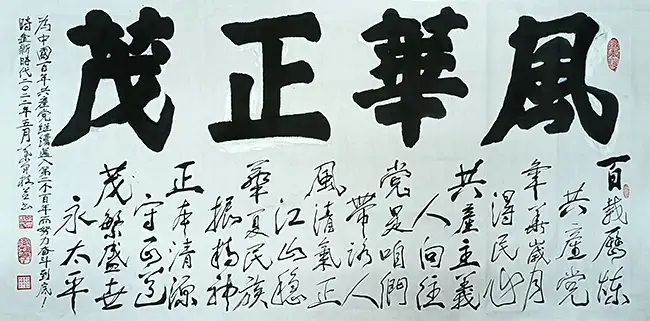 風華正茂
百載歷煉
共產党
歲月
得民心
共產主義
人向往
党是咱們
帶路人
風清氣正
江山穩
華夏民族
振精神
正本清源
守正道
茂繁盛世
永太平
為中國百年共產党继續迈入第二个百年而努力奋斗到底！
時進新時代二〇二二年五月